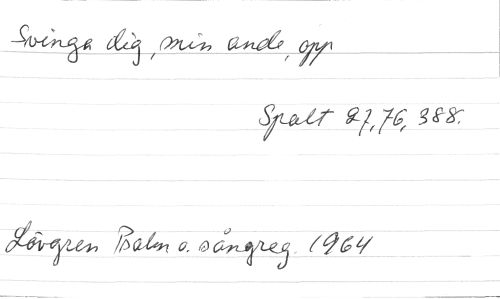 Svinga dig, min ande, opp
Spalt 27, 76, 388.
Lövgren Psalm o. sångreg. 1964